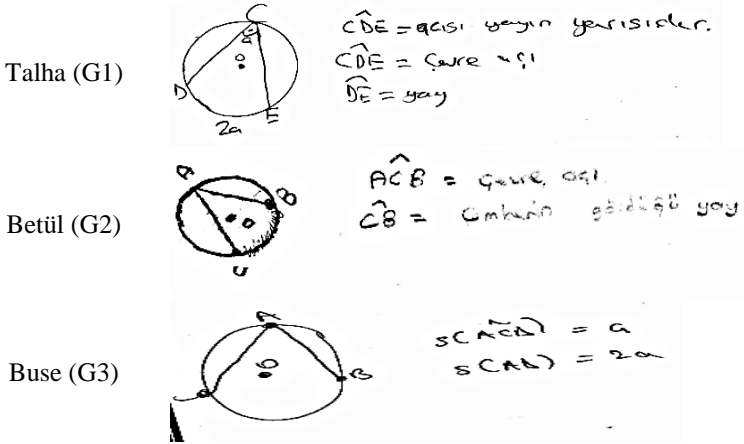 Talha (G1)
C
O
D
E
2a
CDE = açısı yayın yarısıdır.
CDE = Çevre açı
DE = yay
Betül (G2)
A
B
O
C
ACB = Çevre açı
CB = gördüğü yay
Buse (G3)
A
O
B
C
= a
= 2a